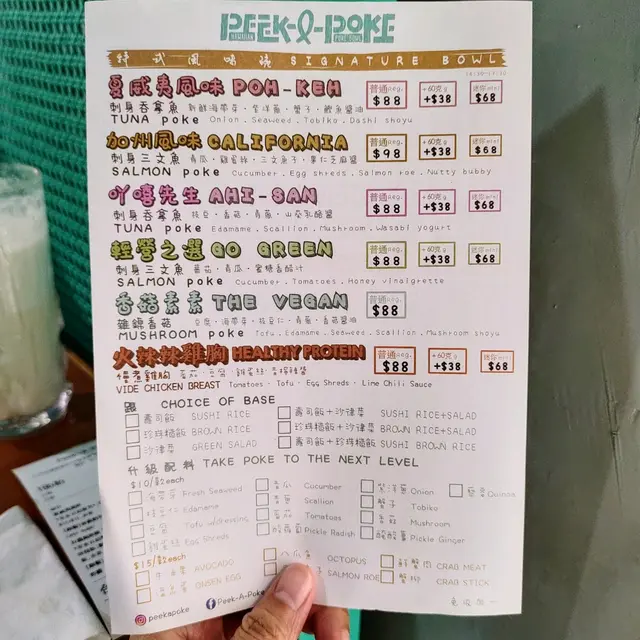 PEEK-A-POKE
HAWAIIAN POKE BOWL
SIGNATURE BOWL
夏威夷風味 POH-KEH 普通reg. $88 +60克g +$38 迷你mini $68
刺身吞拿魚
TUNA poke Onion . Seaweed . Tobiko . Dashi shoyu
加州風味 CALIFORNIA 普通reg. $98 +60克g +$38 迷你mini $68
刺身三文魚 青瓜 . 雞蛋絲 . 三文魚子 . 果仁芝麻醬
SALMON poke Cucumber . Egg shreds . Salmon roe . Nutty bubby
吖嘻先生 AHI-SAN 普通reg. $88 +60克g +$38 迷你mini $68
刺身吞拿魚
TUNA poke Edamame . Scallion . Mushroom . Wasabi yogurt
輕營之選 GO GREEN 普通reg. $88 +60克g +$38 迷你mini $68
刺身三文魚 蕃茄 . 青瓜 . 蜜糖香醋汁
SALMON poke Cucumber . Tomatoes . Honey vinaigrette
香菇素素 THE VEGAN 普通reg. $88
雜錦香菇
MUSHROOM poke Tofu . Edamame . Seaweed . Scallion . Mushroom shoyu
火辣辣雞胸 HEALTHY PROTEIN 普通reg. $88 +60克g +$38 迷你mini $68
慢煮雞胸
VIDE CHICKEN BREAST Tomatoes . Tofu . Egg Shreds . Lime Chili Sauce
CHOICE OF BASE
壽司飯 SUSHI RICE 壽司飯+沙律菜 SUSHI RICE+SALAD
珍珠糙飯 BROWN RICE 珍珠糙飯+沙律菜 BROWN RICE+SALAD
沙律菜 GREEN SALAD 壽司飯+珍珠糙飯 SUSHI BROWN RICE
升級配料 TAKE POKE TO THE NEXT LEVEL
$10/款each
Fresh Seaweed 青瓜 Cucumber 紫洋蔥 Onion 藜麥 Quinoa
枝豆仁 Edamame 青蔥 Scallion 蟹子 Tobiko
豆腐 Tofu 蕃茄 Tomatoes 香菇 Mushroom
雞蛋絲 Egg Shreds Pickle Radish Pickle Ginger
$15/款each
牛油果 AVOCADO 八爪魚 OCTOPUS 鮮蟹肉 CRAB MEAT
溫泉蛋 ONSEN EGG SALMON ROE 蟹柳 CRAB STICK
peekapoke Peek-A-Poke